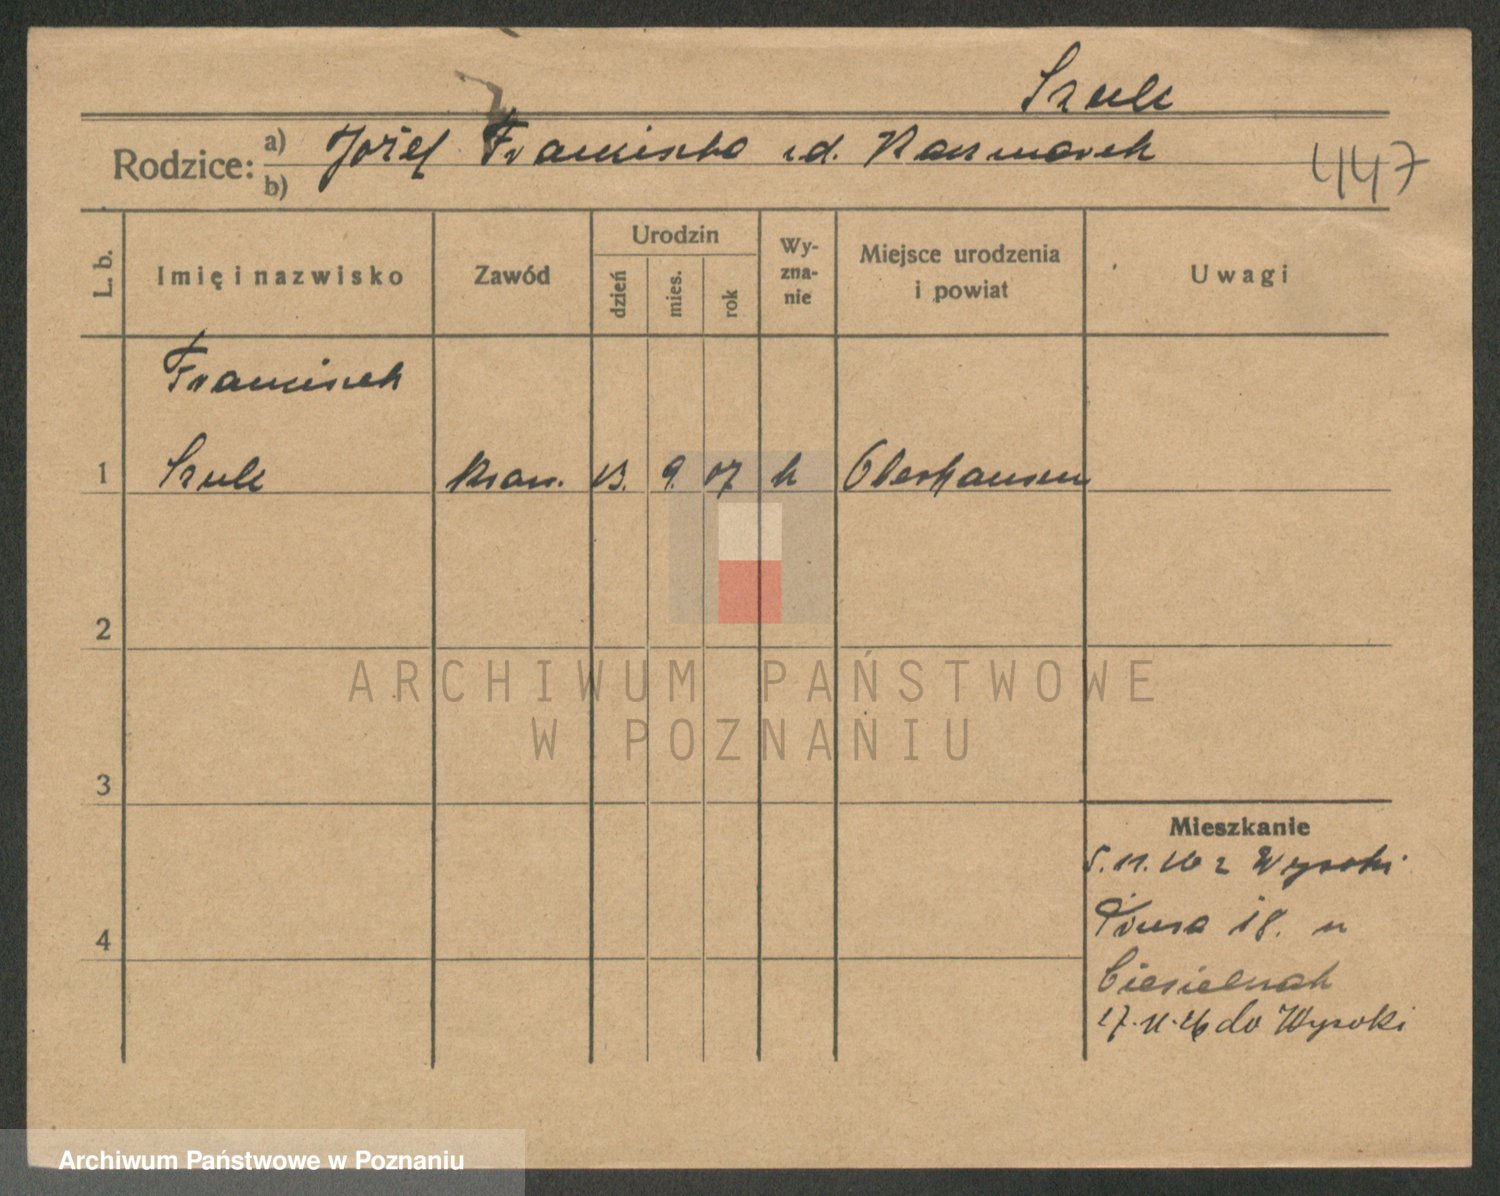 Szulc
Rodzice: a) Józef Franciszka zd. Kaczmarek
b)
447
L. b. Imię i nazwisko Zawód Urodzin dzień mies. rok Wy-zna-nie Miejsce urodzenia i powiat Uwagi
Franciszek
1 Szulc 13. 9. 07 k Oberhausen
2
3
4
Mieszkanie
5. 11. 26 z Wysoki
18.
Ciesielczak
27. 11. 26 do Wysoki
ARCHIWUM PAŃSTWOWE
W POZNANIU
Archiwum Państwowe w Poznaniu